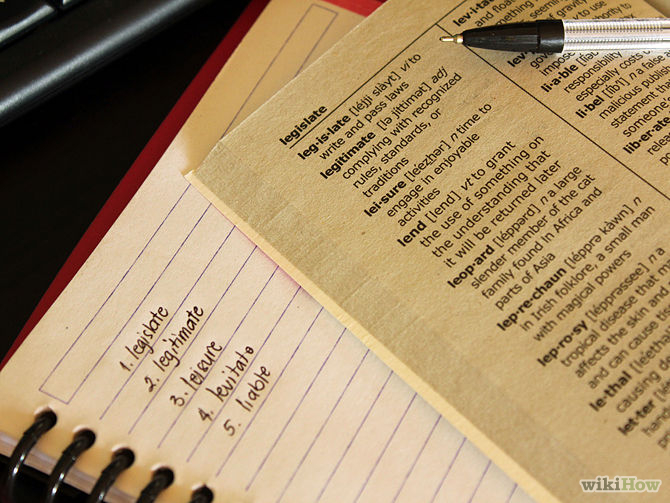 legislate
leg·is·late [léjji slàyt] vi to
write and pass laws
legitimate [lə jíttimət] adj
complying with recognized
rules, standards, or
traditions
lei·sure [léezhər] n time to
engage in enjoyable
activities
lend [lend] vt to grant
the use of something on
the understanding that
it will be returned later
leopard [léppərd] n a large
slender member of the cat
family found in Africa and
parts of Asia
lep·re·chaun [léppra kàwn] n
in Irish folklore, a small man
with magical powers
lep·ro·sy [lépprəssee] n a
tropical disease that
affects the skin and
and can cause
le·thal
causing
let·ter
lev·i·ta
and float
something
of gravity
seeming
li·a·ble
responsibility
especially costs
li·bel [líb'l] n a false
malicious public
statement that
someone
lib·er·ate
release
1. legislate
2. legitimate
3. leisure
4. levitate
5. liable
wikiHow